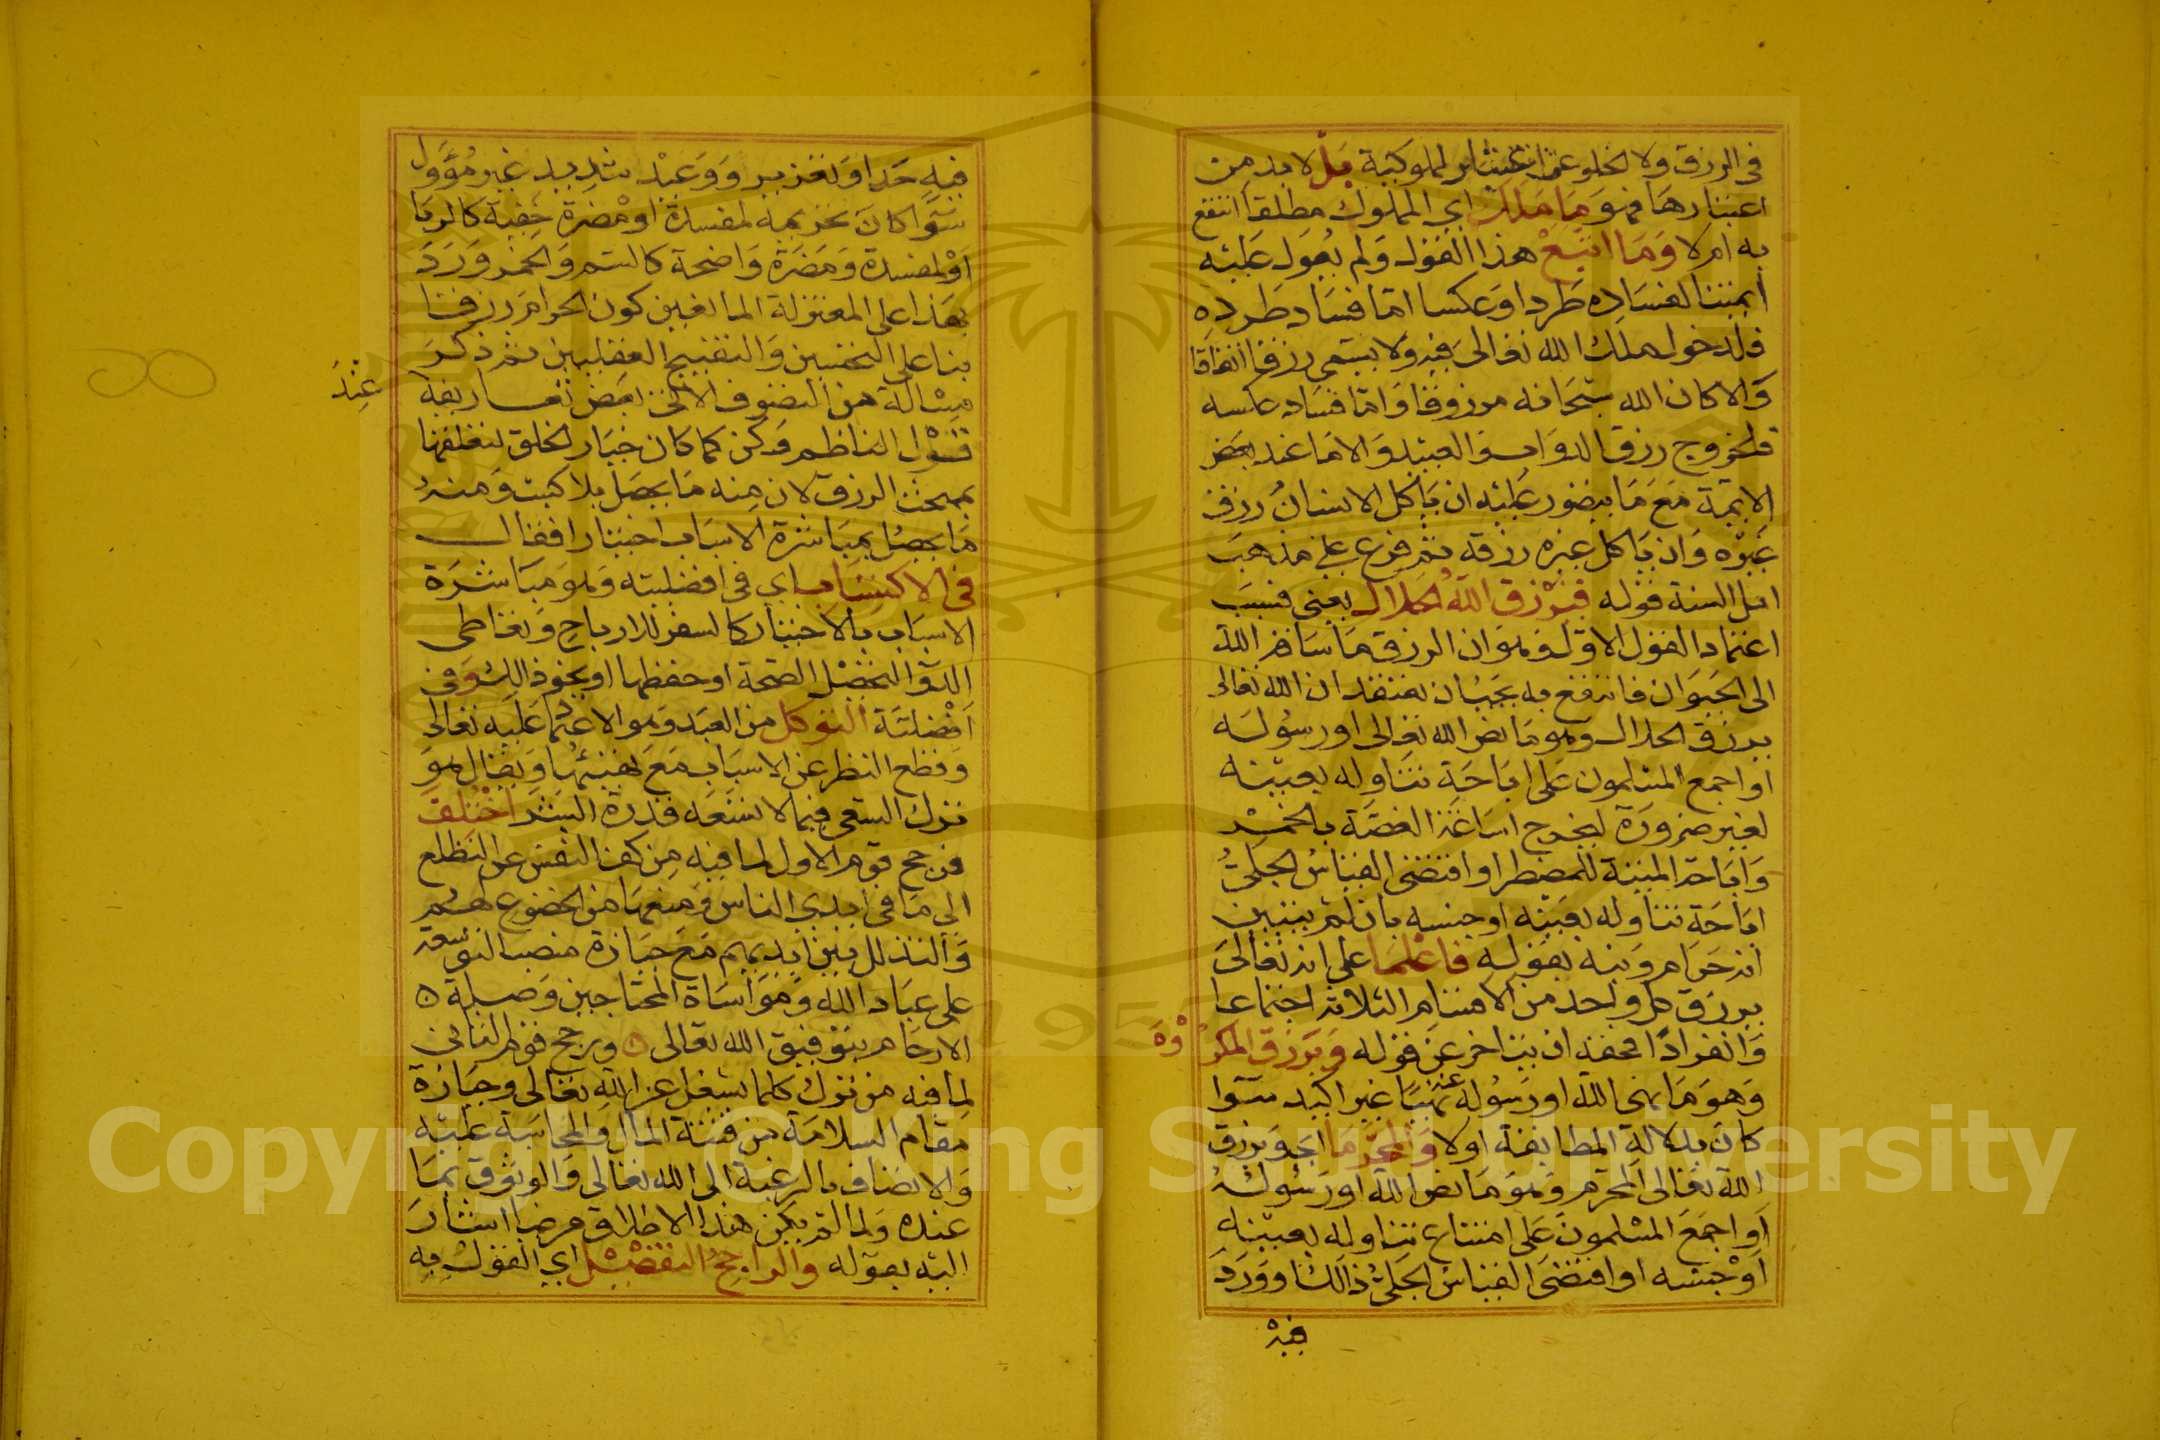 في الرزق ولا لخلو عن اعتبار المملوكية بل لا بد من
اعتبارها فهو ما ملك اي المملوك مطلقا انتفع
به ام لا وما اتبع هذا القول ولم يعول عليه
أيمتنا لفساده طردا وعكسا اما فساد طرده
فلدخول ملك الله تعالى فيه ولا يسمى رزقا اتفاقا
والا كان الله سبحانه مرزوقا واما فساد عكسه
فلخروج رزق الدواب والعبيد والاما عند بعض
الايمة مع ما يتصور عليه ان ياكل الانسان رزق
غيره وان ياكل غيره رزقه ثم فرع على مذهب
اهل السنة قوله فيرزق الله الحلال يعني فبسبب
اعتماد القول الاول وهو ان الرزق ما ساقه الله
الى الحيوان فانتفع به يجب ان نعتقد ان الله تعالى
يرزق الحلال وهو ما نص الله تعالى او رسوله
او اجمع المسلمون على اباحة تناوله بعينه
لغير ضرورة ليخرج اساغة الغصة بالخمر
واباحة الميتة للمضطر او اقتضى القياس الجلي
اباحة تناوله بعينه او جنسه بان لم يتبين
انه حرام ونبه بقوله فاعلما على انه تعالى
يرزق كل واحد من الاقسام الثلاثة اجتماعا
وانفرادا فحقه ان يتاخر عن قوله ويرزق المكروه
وهو ما نهى الله او رسوله عنه نهيا غير اكيد سوا
كان بدلالة المطابقة اولا والمحرما اي ويرزق
الله تعالى المحرم وهو ما نص الله او رسوله
او اجمع المسلمون على امتناع تناوله بعينه
او جنسه او اقتضى القياس الجلي ذالك او ورد
فيه
فيه حد او تعزير او وعيد شديد غير مؤول
سوا كان تحريمه لمفسدة او مضرة خفية كالربا
او لمفسدة ومضرة واضحة كالسم والخمر ورد
بهذا على المعتزلة المانعين كون الحرام رزقا
بنا على التحسين والتقبيح العقليين ثم ذكر
مسالة من التصوف الاتي بعض تعاريفه
عند
قول الناظم وكن كما كان خيار الخلق لتعلقها
بمبحث الرزق لان منه ما يحصل بلا كسب ومنه
ما يحصل بمباشرة الاسباب اختيارا فقال
في الاكتساب اي في افضليته وهو مباشرة
الاسباب بالاختيار كالسفر للارباح وتعاطي
الدوا لتحصيل الصحة او حفظها او نحو ذالك وفي
افضلية التوكل من العبد وهو الاعتماد عليه تعالى
وقطع النظر عن الاسباب مع تهيئتها ويقال هو
ترك السعي فيما لا تسعه قدرة البشر اختلف
فرجح قوم الاول لما فيه من كف النفس عن التطلع
الى ما في ايدي الناس ومنعها من الخضوع لهم
والتذلل بين ايديهم مع حيازة منصب التوسعة
على عباد الله ومواساة المحتاجين وصلة
الارحام بتوفيق الله تعالى ورجح قوم الثاني
لما فيه من ترك كلما يشغل عن الله تعالى وحيازة
مقام السلامة من فتنة المال والمحاسبة عليه
والاتصاف بالرغبة الى الله تعالى والوثوق بما
عنده ولما لم يكن هذا الاطلاق مرضيا اشار
اليه بقوله والراجح التفصيل اي القول به
1957
Copyright © King Saud University